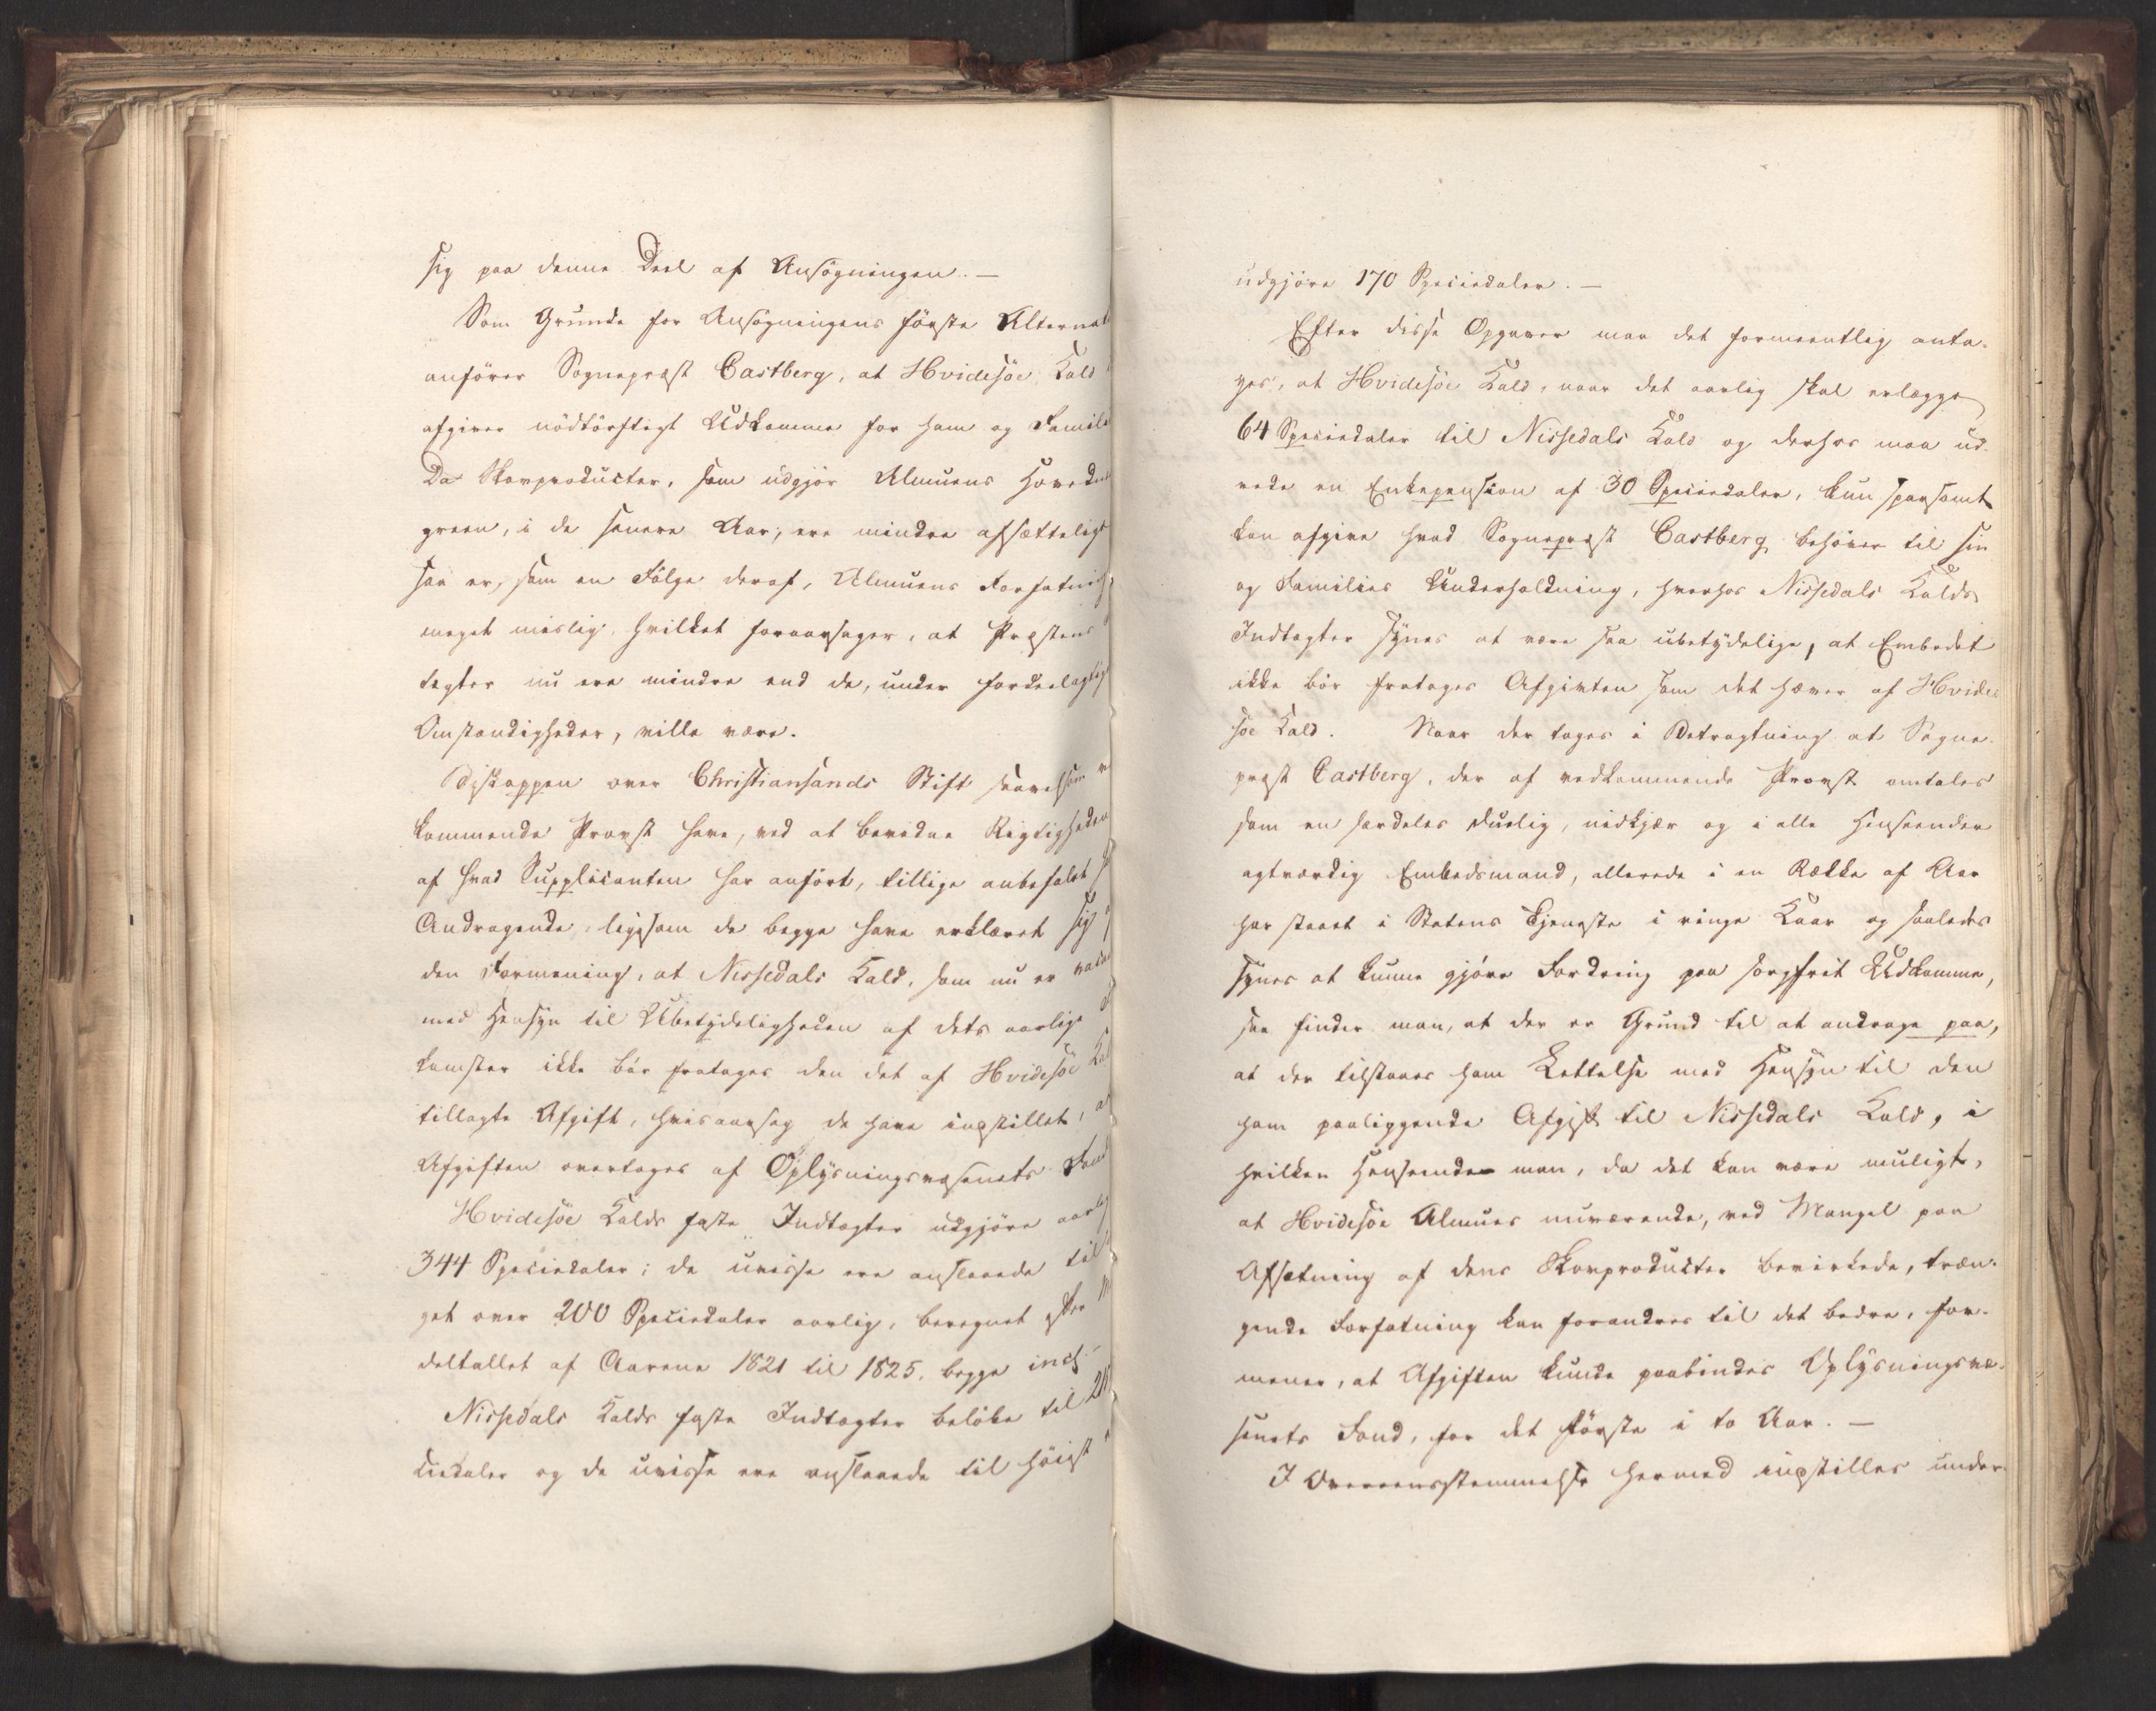 sig paa denne Deel af Ansögningen. —
Som Grunde for Ansögningens förste Alternat
anförer Sognepræst Castberg, at Hvidesöe Kald
afgiver nödtörftigt Udkomme for ham og Famili
Da Skovproducter, som udgjör Almuens Hoved
green, i de senere Aar, ere mindre afsættelige
saa er, som en Fölge deraf, Almuens Forfatning
meget mislig, hvilket foraarsager, at Præstens
tegter nu ere mindre end de, under fordeelagtige
Omstændigheder, ville være.
Biskoppen over Christiansands Stift saavelsom v
kommende Provst have, ved at bevidne Rigtigheden
af hvad Supplicanten har anfört, tillige anbefalet
Andragende, ligesom de begge have erklæret sig
den Formening, at Nissedals Kald, som nu er vaca
med Hensyn til Ubetydeligheden af dets aarlige
komster ikke bör fratages den det af Hvidesöe Kal
tillagte Afgift, hvisaarsag de have indstillet, a
Afgiften overtages af Oplysningsvæsenets Fond
Hvidesöe Kalds faste Indtægter udgjöre aarlig
344 Speciedaler; de uvisse ere anslaaede til
get over 200 Speciedaler aarlig, beregnet efter M
deltallet af Aarene 1821 til 1825, begge incl.
Nissedals Kalds faste Indtægter belöbe til 21
ciedaler og de uvisse ere anslaaede til höist
udgjöre 170 Speciedaler. —
Efter disse Opgaver maa det formeentlig anta-
ges, at Hvidesöe Kald, naar det aarlig skal erlægge
64 Speciedaler til Nissedals Kald og derhos maa ud-
rede en Enkepension af 30 Speciedaler, kun sparsomt
kan afgive hvad Sognepræst Castberg behöver til sin
og Families Underholdning, hvorhos Nissedals Kalds
Indtægter synes at være saa ubetydelige, at Embedet
ikke bör fratages Afgivten som det hæver af Hvide
söe Kald. Naar der tages i Betragtning at Sogne-
præst Castberg, der af vedkommende Provst omtales
som en særdeles duelig, nidkjær og i alle Henseender
agtværdig Embedsmand, allerede i en Række af Aar
har staaet i Statens Tjeneste i ringe Kaar og saaledes
synes at kunne gjöre Fordring paa sorgfrit Udkomme,
saa finder man, at der er Grund til at andrage paa,
at der tilstaaes ham Lettelse med Hensyn til den
ham paaliggende Afgift til Nissedals Kald, i
hvilken Henseende man, da det kan være muligt,
at Hvidesöe Almues nuværende, ved Mangel paa
Afsætning af dens Skovproducter bevirkede, træn-
gende Forfatning kan forandres til det bedre, for-
mener, at Afgiften kunde paabindes Oplysningsvæ-
senets Fond, for det förste i to Aar. —
I Overeensstemmelse hermed indstilles under-